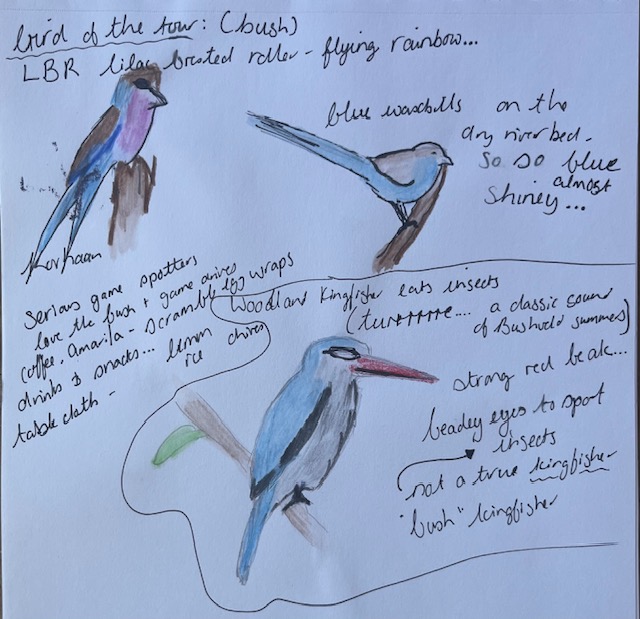 bird of the tour: (bush)
LBR lilac brested roller - flying rainbow...
blue waxbills on the
dry river bed.
so so blue
almost
shiney...
Korhaan
Serious game spotters
love the bush + game drives
coffee. Amarila - scramble egg wraps
drinks & snacks... lemon chives
ice
table cloth -
Woodland Kingfisher eats insects
(turrrrrre.... a classic sound
of Bushveld summes)
strong red beak...
beadey eyes to spot
insects
not a true kingfisher
"bush" kingfisher